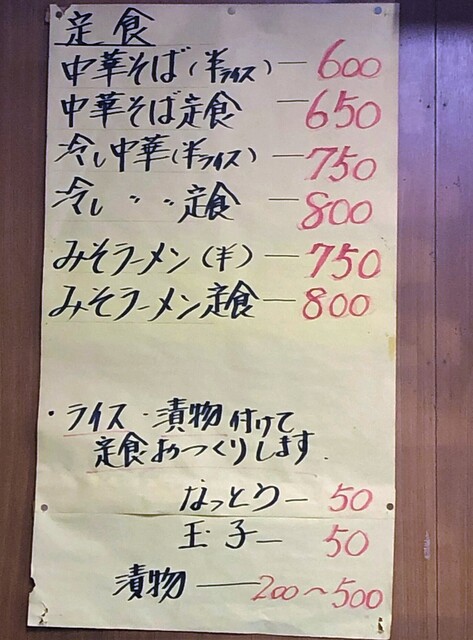 定食
中華そば(半ライス)ー600
中華そば定食ー650
冷し中華(半ライス)ー750
冷し 〃 〃 定食ー800
みそラーメン(半)ー750
みそラーメン定食ー800
・ライス・漬物付けて
定食おつくりします.
なっとうー50
玉子ー50
漬物ー200〜500